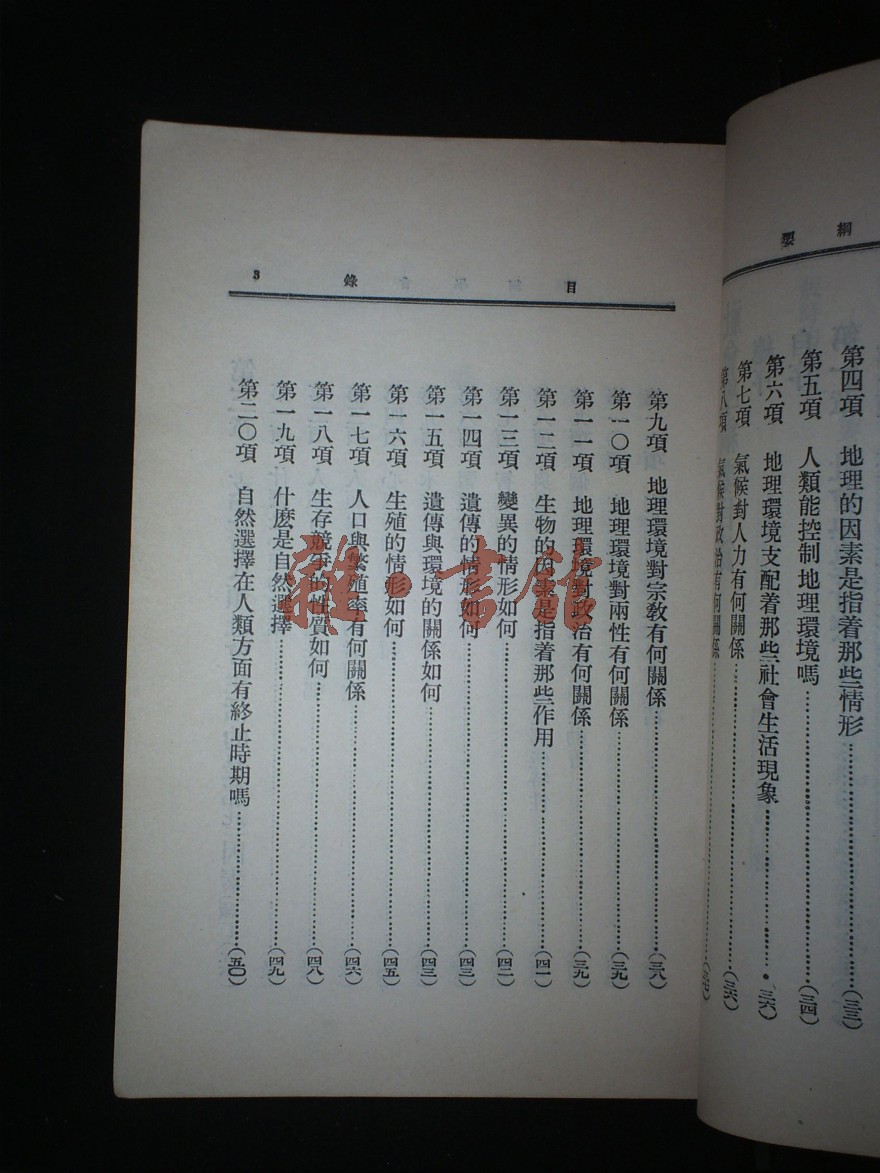 綱要
第四項 地理的因素是指着那些情形……(三三)
第五項 人類能控制地理環境嗎……(三四)
第六項 地理環境支配着那些社會生活現象……(三六)
第七項 氣候對人力有何關係……(三六)
第八項 氣候對政治有何關係……
目錄 3
第九項 地理環境對宗教有何關係……(三八)
第一〇項 地理環境對兩性有何關係……(三九)
第一一項 地理環境對政治有何關係……(三九)
第一二項 生物的因素是指着那些作用……(四一)
第一三項 變異的情形如何……(四二)
第一四項 遺傳的情形如何……(四三)
第一五項 遺傳與環境的關係如何……(四三)
第一六項 生殖的情形如何……(四五)
第一七項 人口與繁殖率有何關係……(四六)
第一八項 生存競爭的性質如何……(四八)
第一九項 什麽是自然選擇……(四九)
第二〇項 自然選擇在人類方面有終止時期嗎……(五〇)
雜·書館